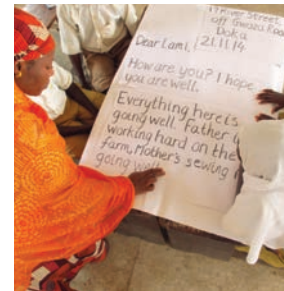 17 River Street,
off Gwaza Road
Doka
21.11.14
Dear Lami,
How are you? I hope
you are well.
Everything here is
going well. Father is
working hard on the
farm, Mother's sewing
going well